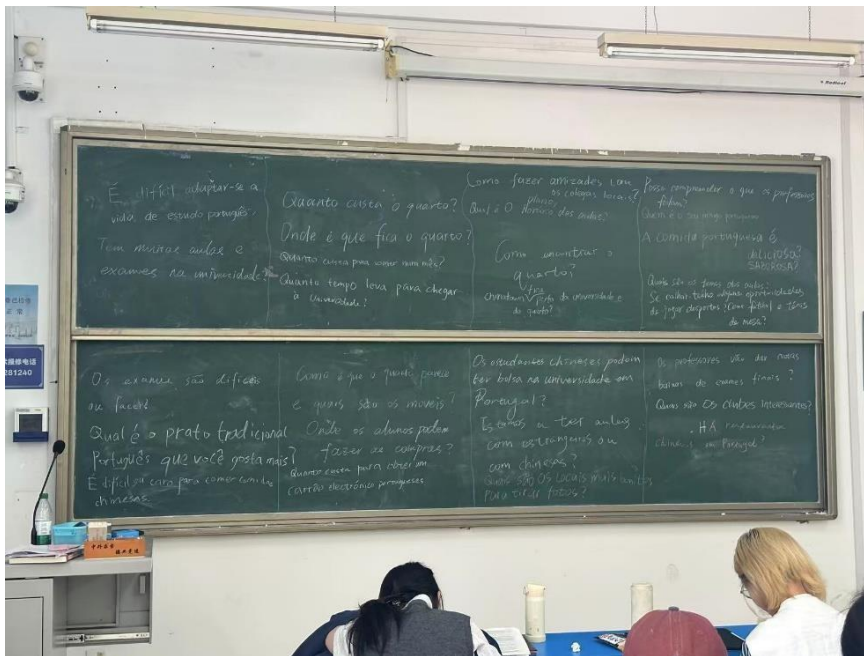 É difícil adaptar-se a
vida de estudo português.
Tem muitas aulas e
exames na univercidade?
Quanto custa o quarto?
Onde é que fica o quarto?
Quanto custa para comer num mês?
Quanto tempo leva para chegar
à universidade?
Como fazer amizades com
os colegas locais?
Qual é o plano
das aulas?
Como encontrar o
quarto?
fica
perto da universidade e
do quarto?
Posso comprender o que os professores
falam?
Quem é o seu amigo português
A comida portuguesa é
deliciosa?
SABOROSA?
Quais são os temas das aulas?
Se calhar tenho algumas oportunidades
de jogar desportos (como futebol e ténis
de mesa)?
Os exames são difíceis
ou
Qual é o prato tradicional
Português que você gosta mais?
É difícil ou caro para comer comidas
chinesas.
Como é que o quarto parece
e quais são os móveis?
Onde os alunos podem
fazer as compras?
Quanto custa para obter um
cartão electrónico
Os estudantes chineses podem
ter bolsa na universidade em
Portugal?
Estamos a ter aulas
com estrangeiros ou
com chineses?
Quais são os locais mais bonitos
para tirar fotos?
Os professores vão dar notas
baixas de exames finais?
Quais são os clubes interessantes?
HÁ
em Portugal?
281240